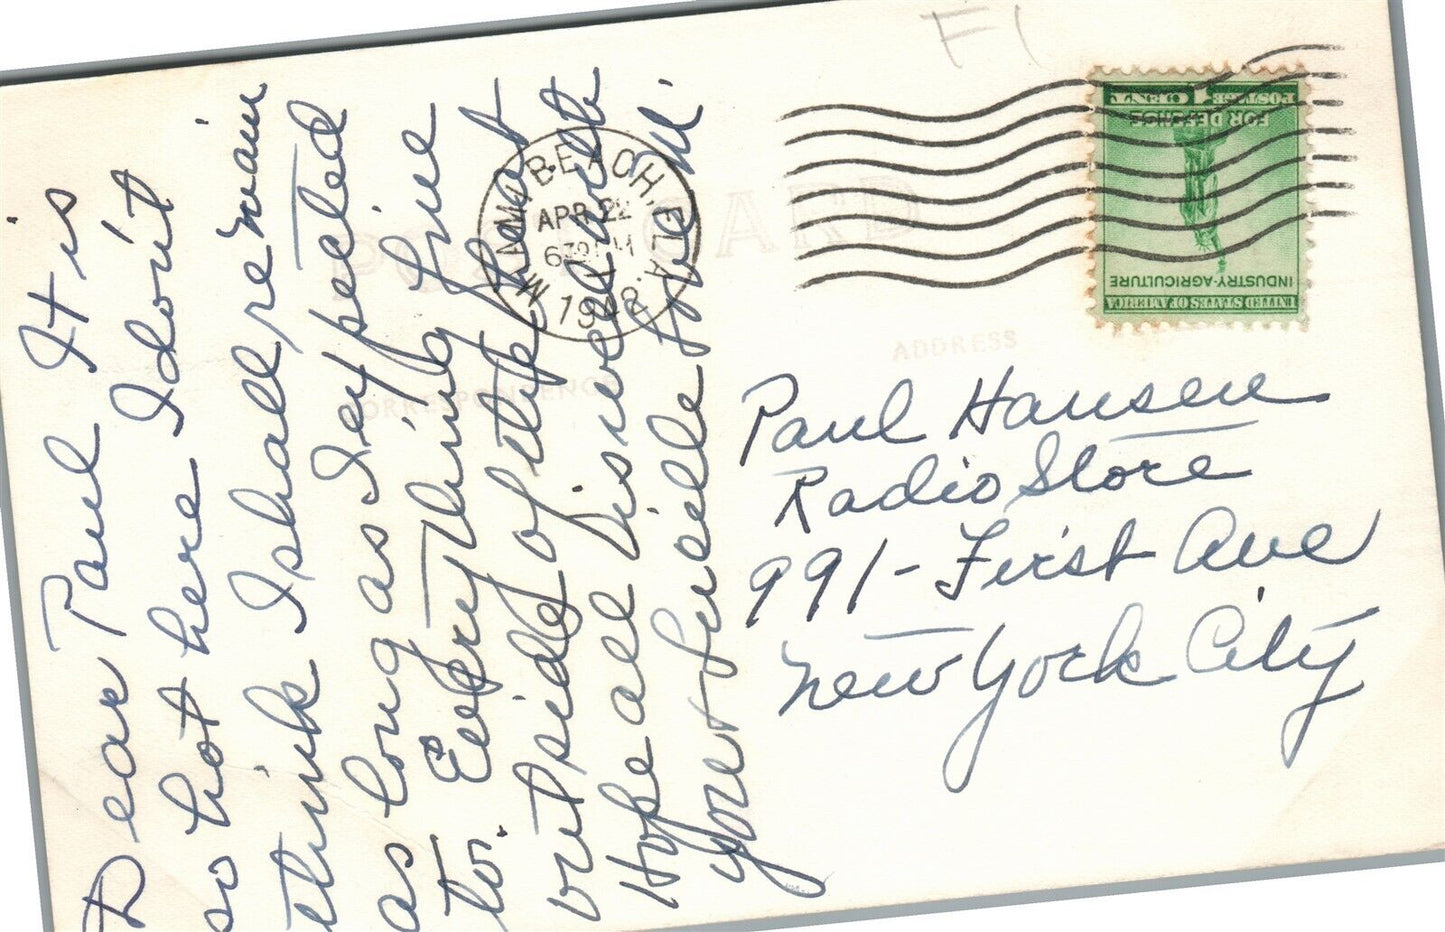 Dear Paul It is
so hot here I don't
think I shall remain
as long as I expected
to. Everything fine
outside of the heat
Hope all is well with
you +
F1
MIAMI BEACH, FLA.
APR 22
6 30 PM
1942
POST CARD
CORRESPONDENCE
ADDRESS
UNITED STATES OF AMERICA
INDUSTRY-AGRICULTURE
FOR DEFENSE
POSTAGE 1 CENT
Paul Hansen
Radio Store
991-First Ave
New York City